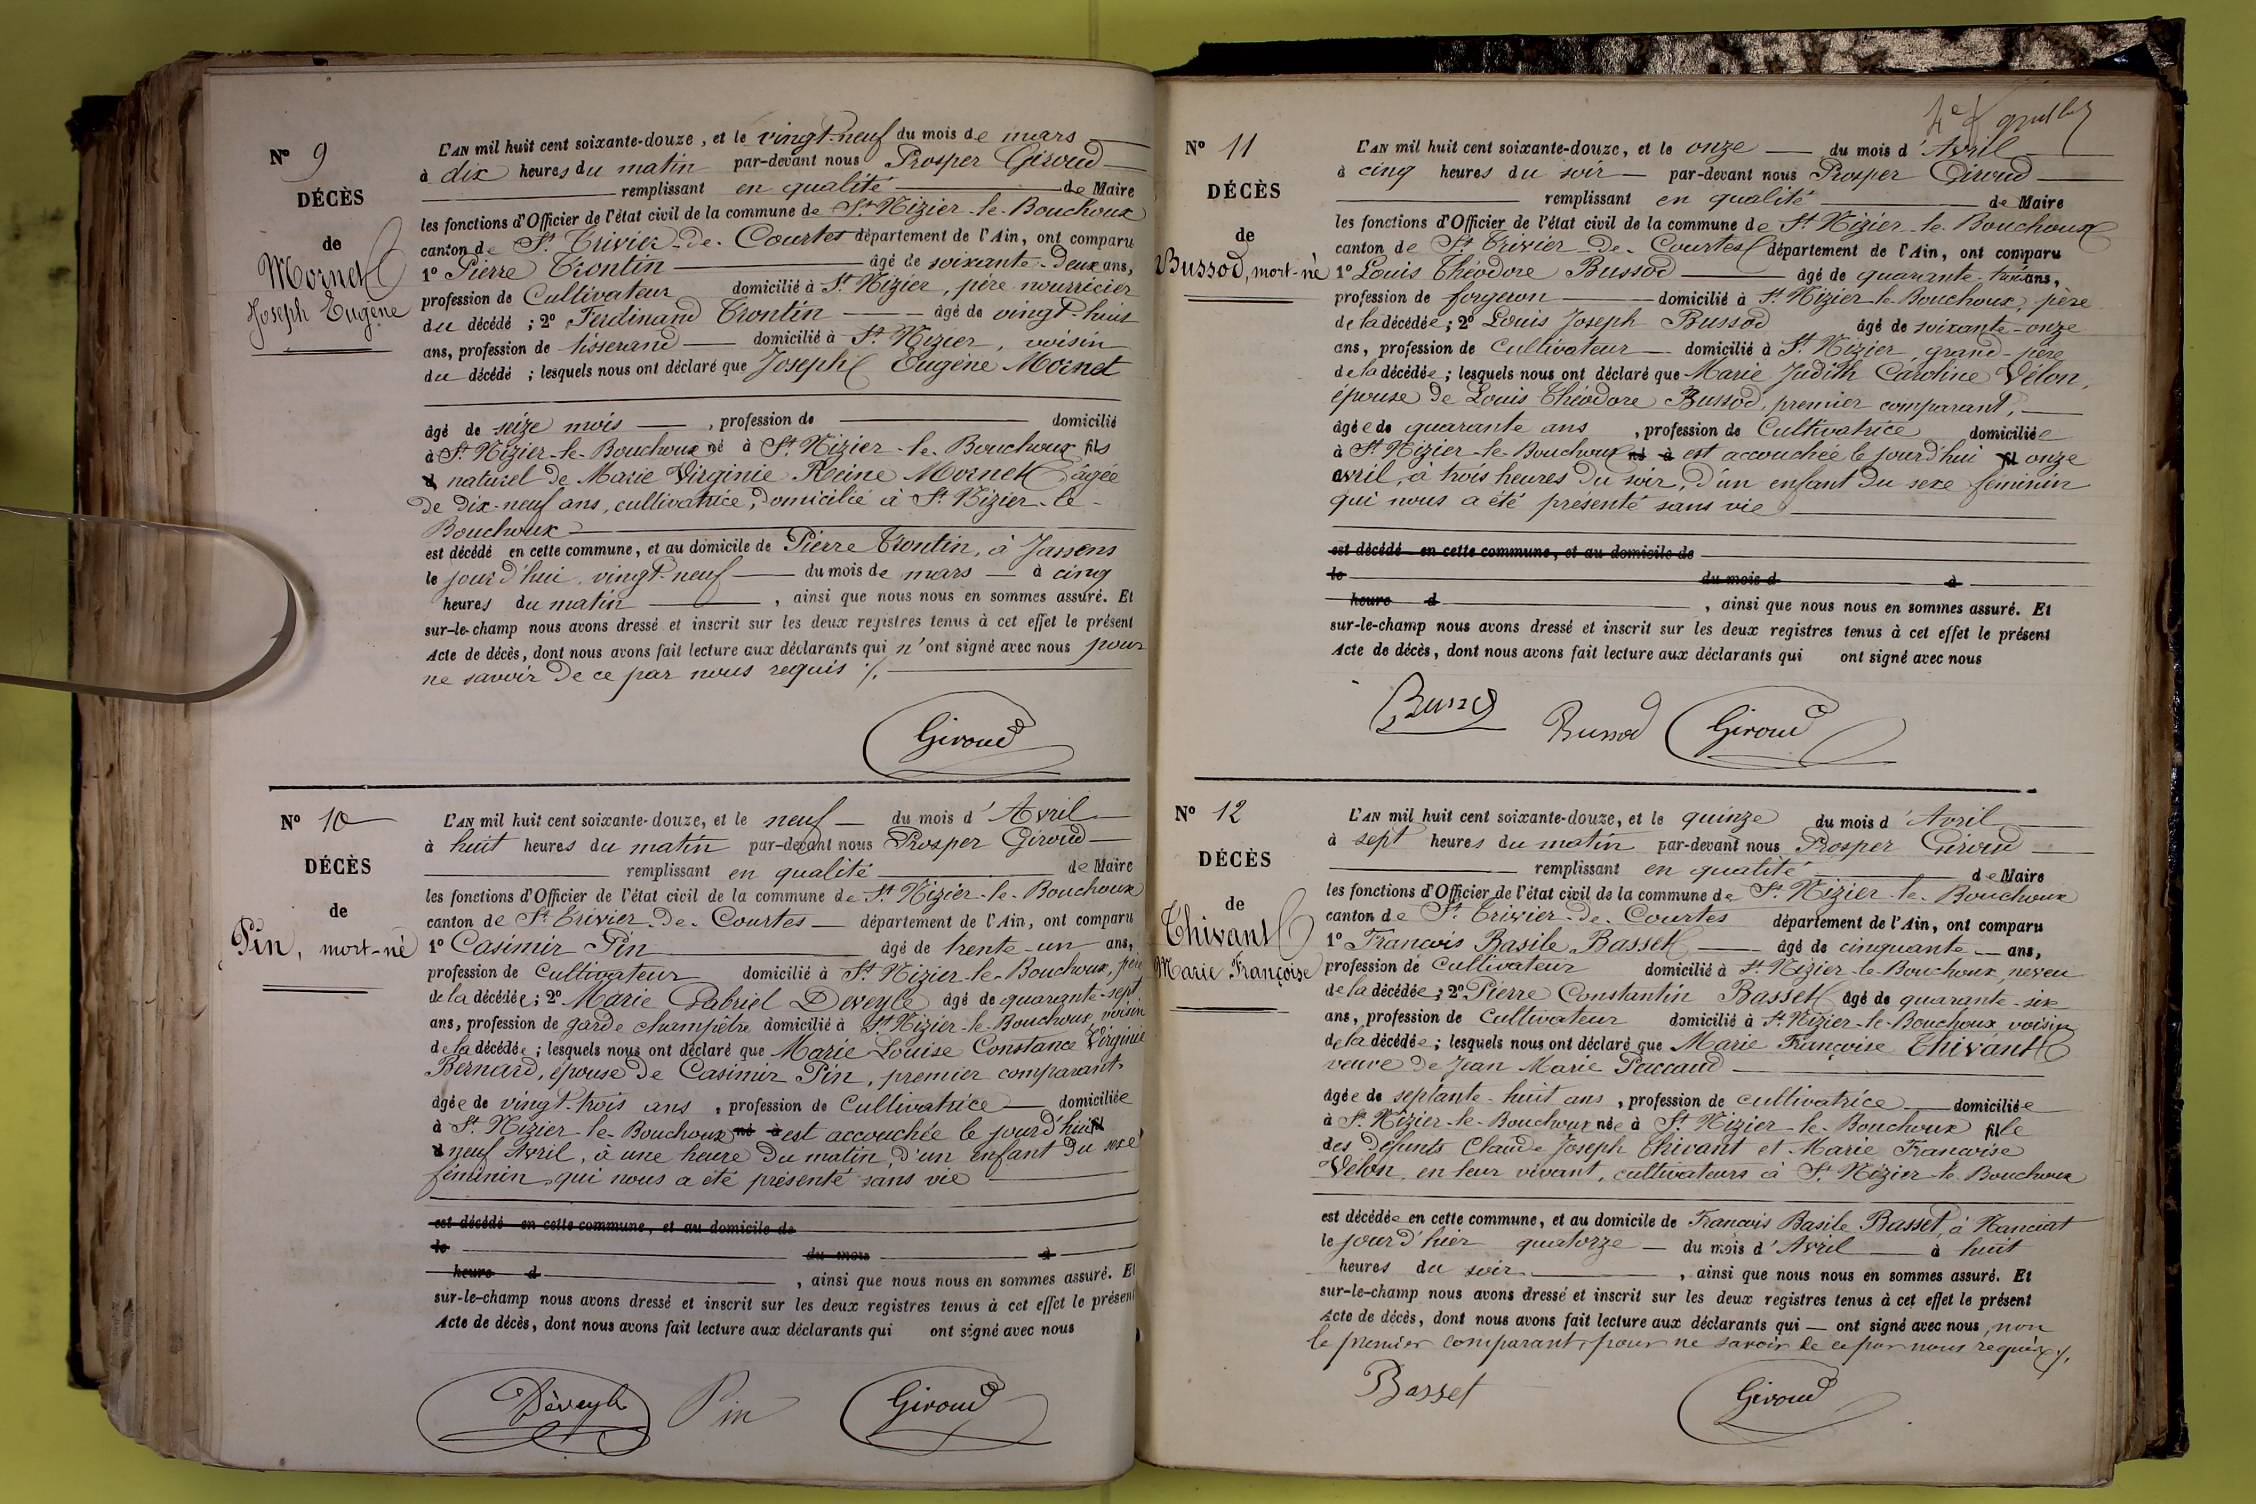 Nº 9
DÉCÈS
de
Mornet
Joseph Eugène
L'AN mil huit cent soixante-douze, et le vingt-neuf du mois de mars
à dix heures du matin par-devant nous Prosper Giroud
remplissant en qualité de Maire
les fonctions d'Officier de l'état civil de la commune de St Nizier-le-Bouchoux
canton de St Trivier-de-Courtes département de l'Ain, ont comparu
1º Pierre Trontin âgé de soixante-deux ans,
profession de Cultivateur domicilié à St Nizier, père nourricier
du décédé ; 2º Ferdinand Trontin âgé de vingt-huit
ans, profession de tisserand domicilié à St Nizier, voisin
du décédé ; lesquels nous ont déclaré que Joseph Eugène Mornet
âgé de seize mois, profession de domicilié
à St Nizier-le-Bouchoux né à St Nizier-le-Bouchoux fils
naturel de Marie Virginie Reine Mornet âgée
de dix-neuf ans, cultivatrice, domicilié à St Nizier-le-
Bouchoux
est décédé en cette commune, et au domicile de Pierre Trontin, à Jassens
le jourd'hui vingt-neuf du mois de mars à cinq
heures du matin, ainsi que nous nous en sommes assuré. Et
sur-le-champ nous avons dressé et inscrit sur les deux registres tenus à cet effet le présent
Acte de décès, dont nous avons fait lecture aux déclarants qui n'ont signé avec nous pour
ne savoir de ce par nous requis ./.
Giroud
Nº 10
DÉCÈS
de
Pin, mort-né
L'AN mil huit cent soixante-douze, et le neuf du mois d'Avril
à huit heures du matin par-devant nous Prosper Giroud
remplissant en qualité de Maire
les fonctions d'Officier de l'état civil de la commune de St Nizier-le-Bouchoux
canton de St Trivier-de-Courtes département de l'Ain, ont comparu
1º Casimir Pin âgé de trente-un ans,
profession de Cultivateur domicilié à St Nizier-le-Bouchoux, père
de la décédée ; 2º Marie Gabriel Deveyle âgé de quarante-sept
ans, profession de garde champêtre domicilié à St Nizier-le-Bouchoux, voisin
de la décédée ; lesquels nous ont déclaré que Marie Louise Constance Virginie
Bernard, épouse de Casimir Pin, premier comparant,
âgée de vingt-trois ans, profession de Cultivatrice domiciliée
à St Nizier-le-Bouchoux né à est accouchée le jourd'hui fil
d neuf Avril, à une heure du matin, d'un enfant du sexe
féminin, qui nous a été présenté sans vie
est décédé en cette commune, et au domicile de
le du mois à
heure d, ainsi que nous nous en sommes assuré. Et
sur-le-champ nous avons dressé et inscrit sur les deux registres tenus à cet effet le présent
Acte de décès, dont nous avons fait lecture aux déclarants qui ont signé avec nous
Dèveyle Pin Giroud
Nº 11
DÉCÈS
de
Bussod, mort-né
L'AN mil huit cent soixante-douze, et le onze du mois d'Avril
à cinq heures du soir par-devant nous Prosper Giroud
remplissant en qualité de Maire
les fonctions d'Officier de l'état civil de la commune de St Nizier-le-Bouchoux
canton de St Trivier-de-Courtes département de l'Ain, ont comparu
1º Louis Théodore Bussod âgé de quarante-trois ans,
profession de forgeron domicilié à St Nizier-le-Bouchoux, père
de la décédée ; 2º Louis Joseph Bussod âgé de soixante-onze
ans, profession de Cultivateur domicilié à St Nizier, grand-père
de la décédée ; lesquels nous ont déclaré que Marie Judith Caroline Vélon,
épouse de Louis Théodore Bussod, premier comparant,
âgée de quarante ans, profession de Cultivatrice domiciliée
à St Nizier-le-Bouchoux né à est accouchée le jourd'hui fil onze
avril, à trois heures du soir, d'un enfant du sexe féminin
qui nous a été présenté sans vie
est décédé en cette commune, et au domicile de
le du mois d à
heure d, ainsi que nous nous en sommes assuré. Et
sur-le-champ nous avons dressé et inscrit sur les deux registres tenus à cet effet le présent
Acte de décès, dont nous avons fait lecture aux déclarants qui ont signé avec nous
Bussod Bussod Giroud
Nº 12
DÉCÈS
de
Thivant
Marie Françoise
L'AN mil huit cent soixante-douze, et le quinze du mois d'Avril
à sept heures du matin par-devant nous Prosper Giroud
remplissant en qualité de Maire
les fonctions d'Officier de l'état civil de la commune de St Nizier-le-Bouchoux
canton de St Trivier-de-Courtes département de l'Ain, ont comparu
1º Francois Basile Basset âgé de cinquante ans,
profession de Cultivateur domicilié à St Nizier-le-Bouchoux, neveu
de la décédée ; 2º Pierre Constantin Basset âgé de quarante-six
ans, profession de Cultivateur domicilié à St Nizier-le-Bouchoux, voisin
de la décédée ; lesquels nous ont déclaré que Marie Françoise Thivant
veuve de Jean Marie Paccaud
âgée de septante-huit ans, profession de cultivatrice domiciliée
à St Nizier-le-Bouchoux née à St Nizier-le-Bouchoux fille
des défunts Claude Joseph Thivant et Marie Francoise
Vélon, en leur vivant, cultivateurs à St Nizier-le-Bouchoux
est décédée en cette commune, et au domicile de Francois Basile Basset, à Nanciat
le jourd'hier quatorze du mois d'Avril à huit
heures du soir, ainsi que nous nous en sommes assuré. Et
sur-le-champ nous avons dressé et inscrit sur les deux registres tenus à cet effet le présent
Acte de décès, dont nous avons fait lecture aux déclarants qui ont signé avec nous, non
le premier comparant, pour ne savoir de ce par nous requis ./.
Basset Giroud